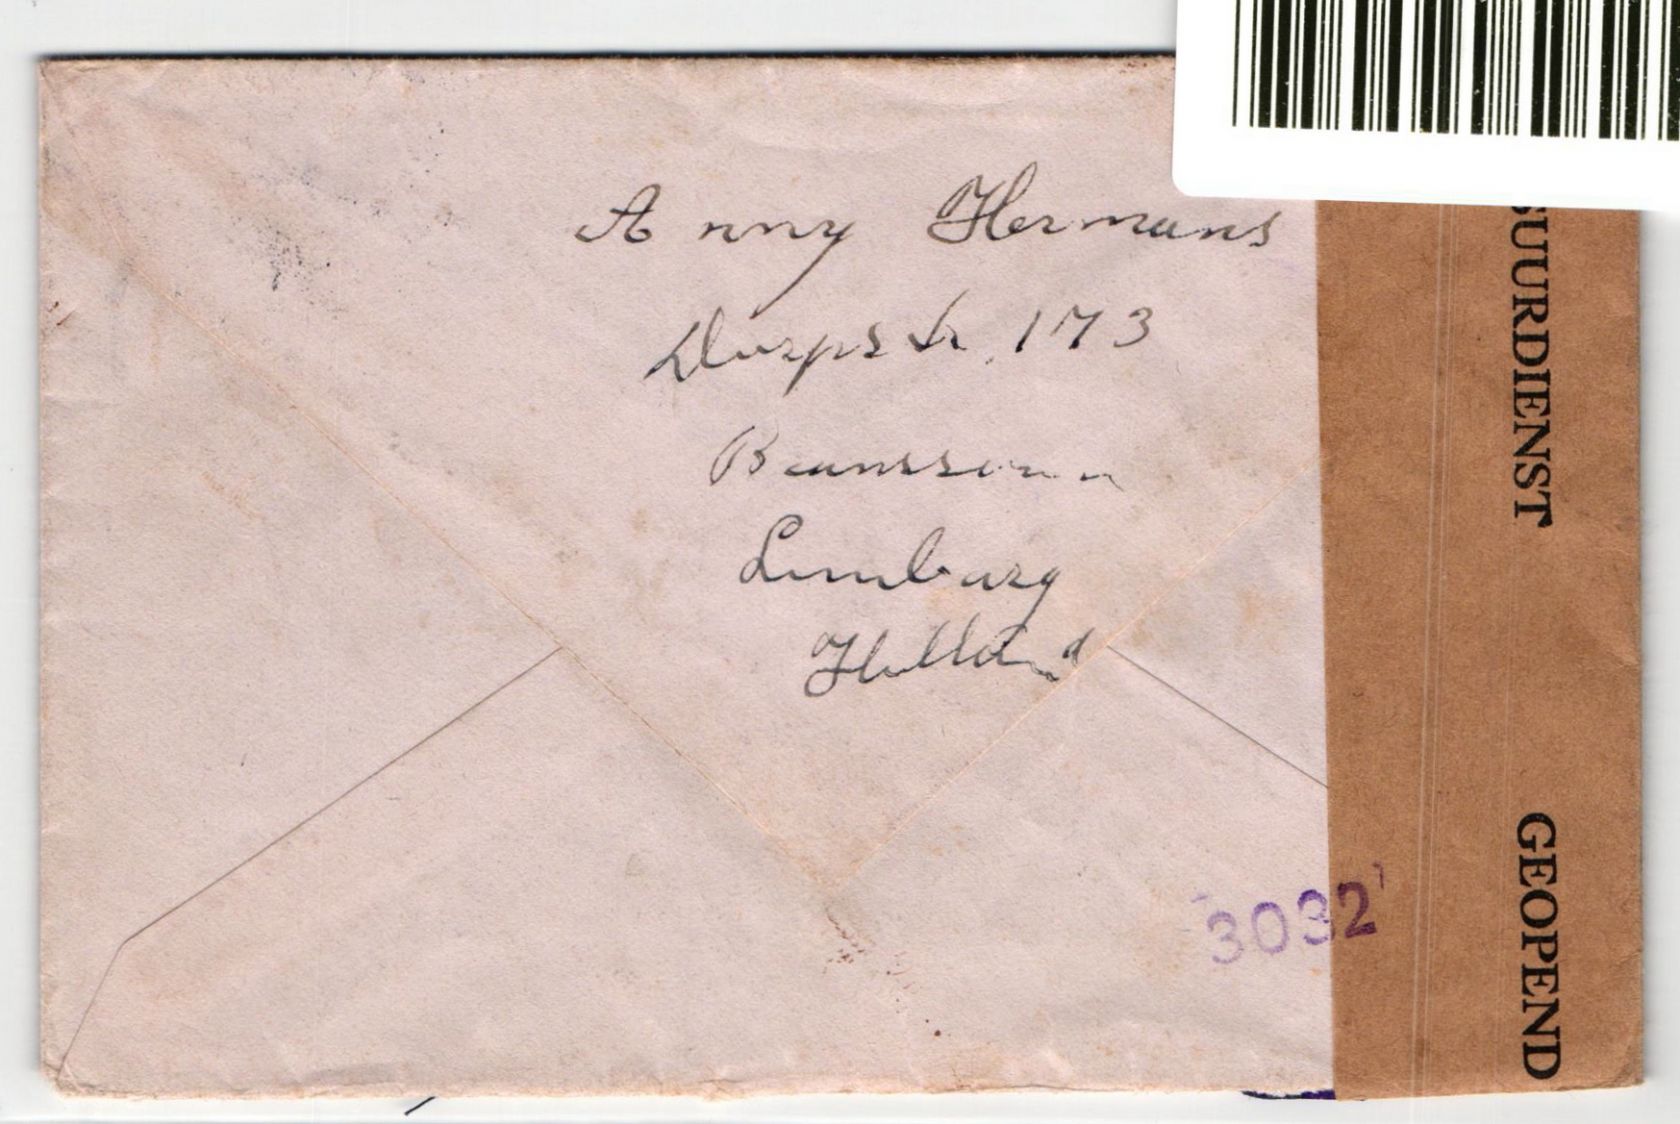 Anny Hermans
Dorpstr. 173
Brunssum
Limburg
Holland
3032
SUURDIENST
GEOPEND